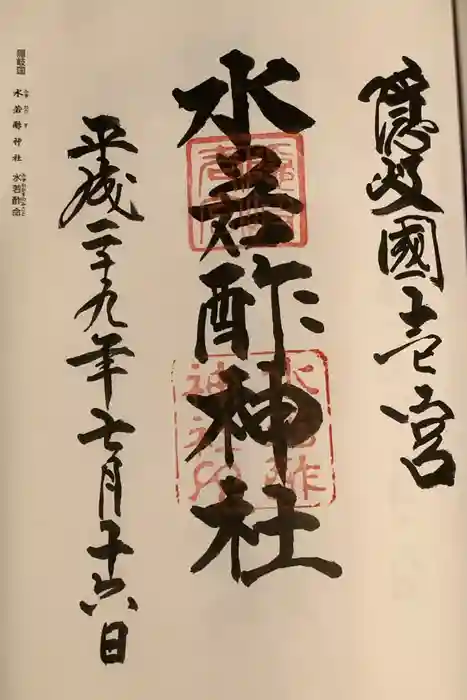 隠岐國壱宮
水若酢神社
水若酢神社印
平成二十九年七月十六日
隠岐国 水若酢神社 水若酢命